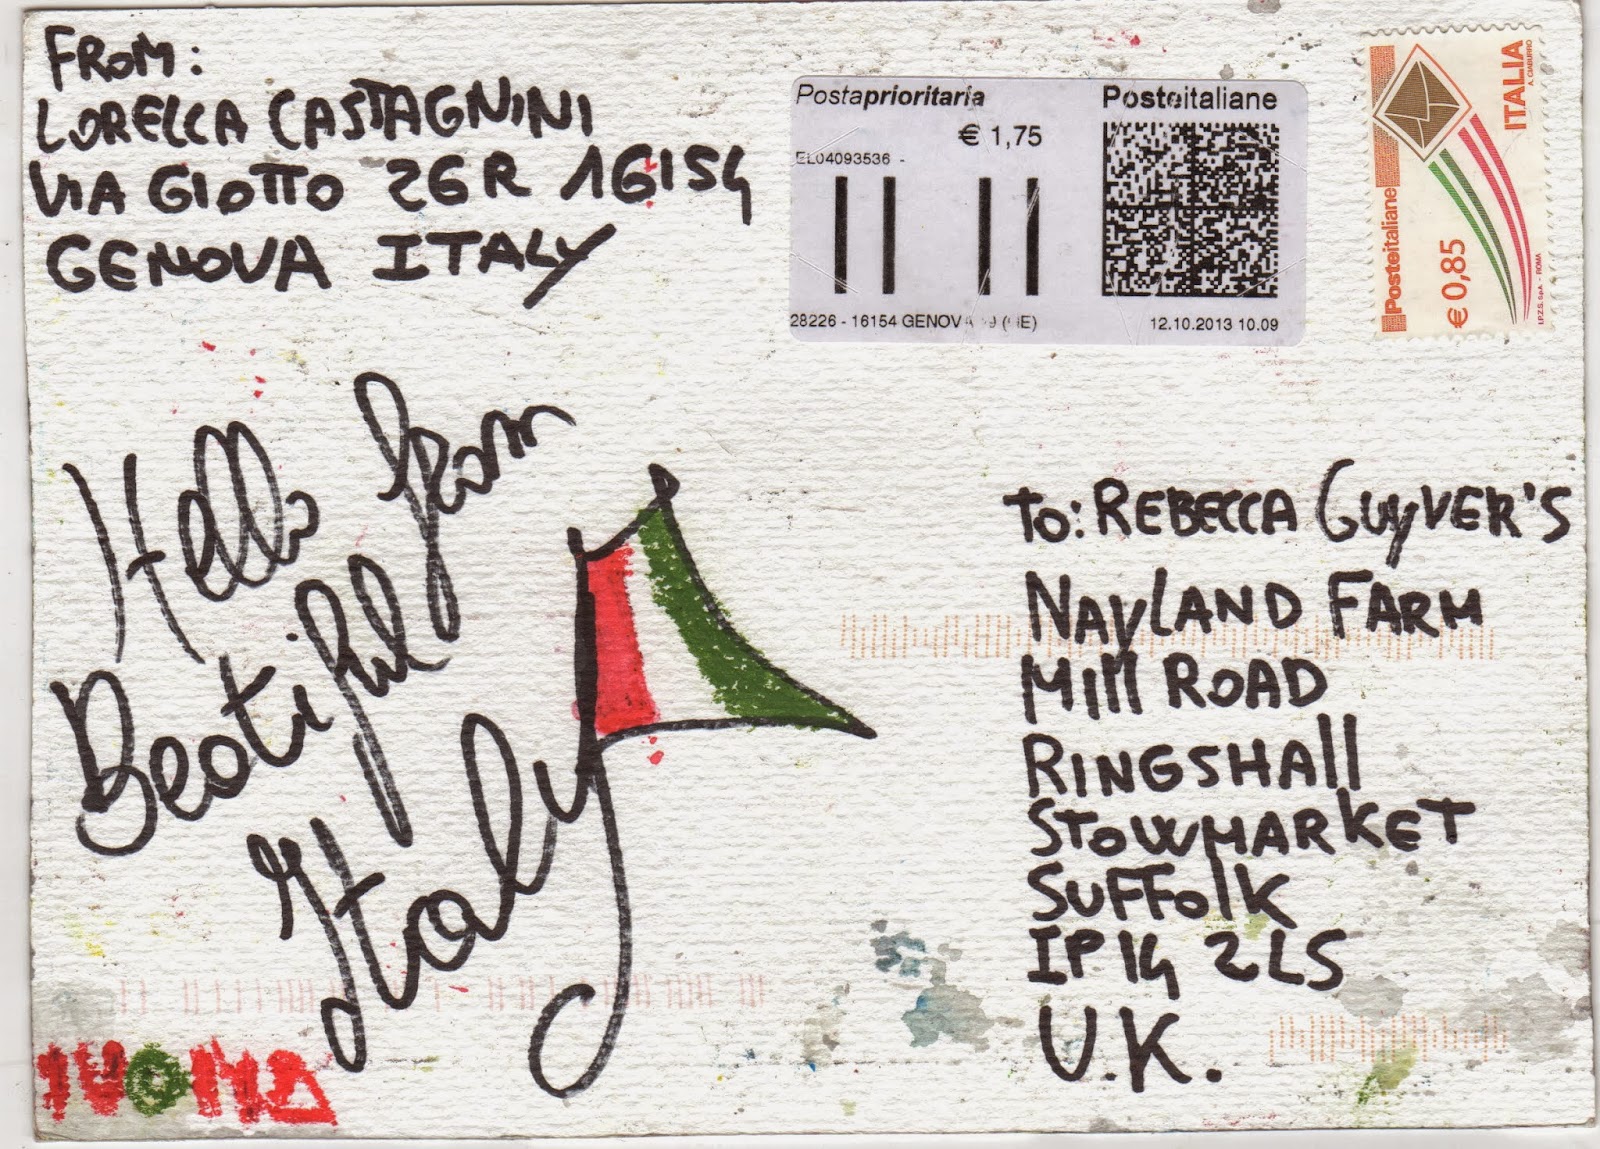 FROM:
LORELLA CASTAGNINI
VIA GIOTTO 26R 16154
GENOVA ITALY
Postaprioritaria
Posteitaliane
€ 1,75
EL04093536 -
28226 - 16154 GENOVA 19 (GE)
12.10.2013 10.09
ITALIA
A. CIABURRO
Posteitaliane
€ 0,85
I.P.Z.S. S.p.A. - ROMA
Hello from
Beotiful
Italy
To: REBECCA GUYVER'S
NAYLAND FARM
Mill ROAD
RINGSHAll
STOWMARKET
SUFFOlK
IP14 2LS
U.K.